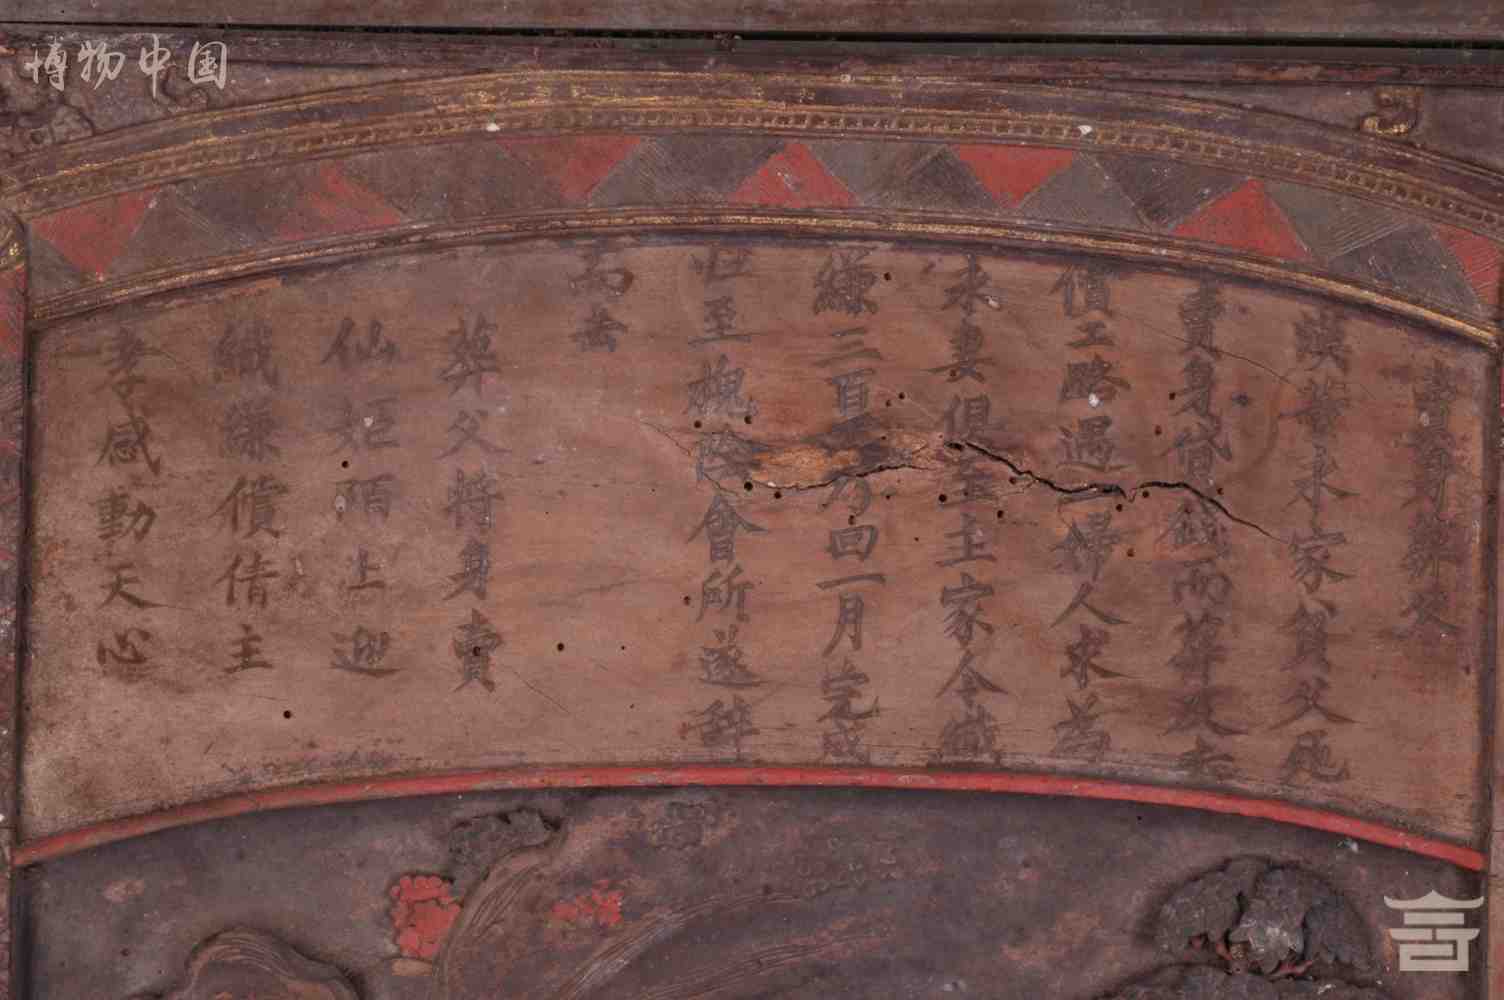 賣身葬父
漢董永家貧父死
賣身貸錢而葬及去
償工路遇一婦人求為
永妻俱至主家令織
縑三百乃回一月完成
歸至槐陰會所遂辭
而去
葬父將身賣
仙姬陌上迎
織縑償債主
孝感動天心
博物中国